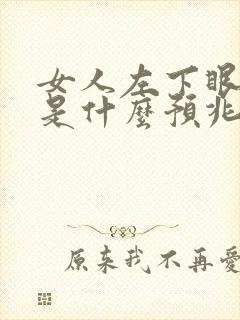 女人左下眼
是什麼預兆
原来我不再愛